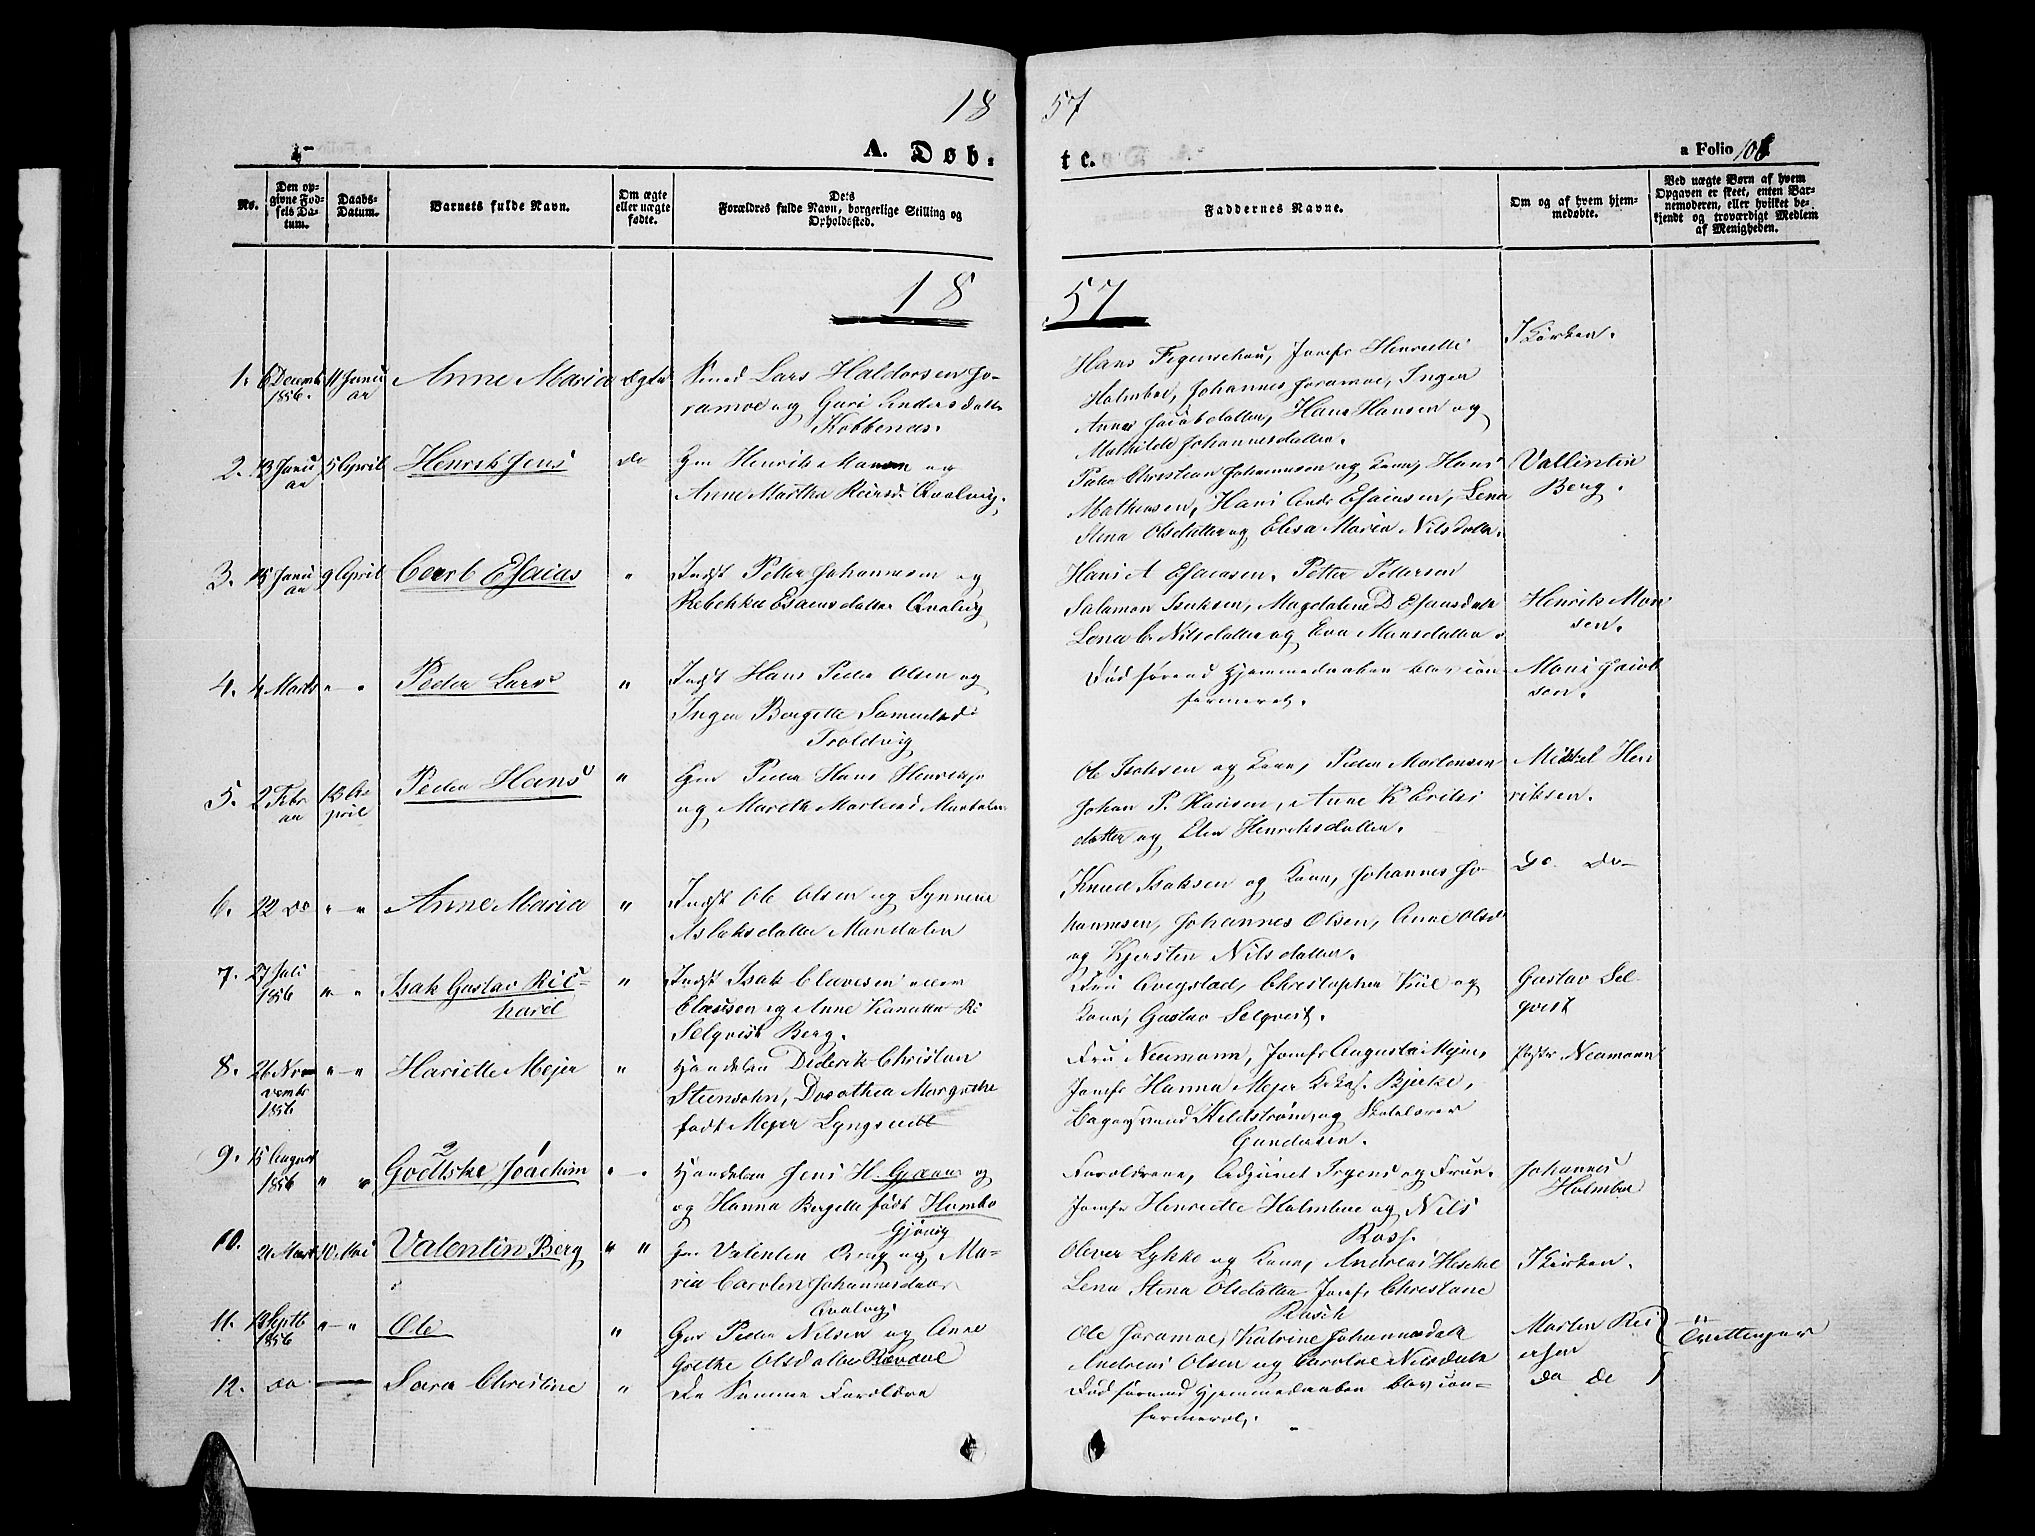 18 57
A. Døb- te.
a Folio 106
No.
Den op-
givne Fød-
sels Da-
tum.
Daabs-
Datum.
Barnets fulde Navn.
Om ægte
eller uægte
fødte.
Dets
Forældres fulde Navn, borgerlige Stilling og
Opholdssted.
Faddernes Navne.
Om og af hvem hjem-
medøbte.
Ved uægte Børn af hvem
Opgaven er skeet, enten Bar-
nemoderen, eller hvilket be-
kjendt og troværdigt Medlem
af Menigheden.
18 57
1. 6 Decemb 11 Janu Anne Maria ægte Smed Lars Haldorsen Jo-
1856. ar ramoe og Guri Andersdatter
Kobbenes.
Hans Figenschou, Jomfr Henriette
Holmboe, Johannes Joramoe, Inger
Anna Jacobsdatter, Hans Hansen og
Mathilde Johannesdatter.
I Kirken.
2. 13 Janu 5 April Henrik Jens do Gm Henrik Monsen og
ar Anne Martha Reiersd. Qvalvig.
Peder Christian Johannesen og Kone, Hans
Mathisen, Hans Andr Esaiasen, Lena
Stena Olsdatter og Elisa Maria Nilsdatter.
Vallintin
Berg.
3. 15 Janu 9 April Carl Esaias " Indst Petter Johannesen og
ar Rebekka Esaiasdatter Qvalvig
Hans A Esaiasen. Petter Pettersen
Salamon Isaksen, Magdalena D Esaiasdatt
Lena C. Nilsdatter og Eva Monsdatter.
Henrik Mon
sen.
4. 4 Marts " — " Peder Lars " Indst Hans Peder Olsen og
Inger Bergitte Samuelsd.
Troldvig
Død førend Hjemmedaaben blev con-
fermeret.
Mons Jacob
sen.
5. 2 Febr 13 A- Peder Hans " Gm Peder Hans Henriksen
ar pril og Marith Mortensd Mandalen
Ole Isaksen og Kone, Peder Mortensen
Johan P. Hansen, Anne K Eriks
datter og Elen Henriksdatter.
Mikkel Hen
riksen.
6. 22 do " — " Anne Maria " Indst Ole Olsen og Synneva
Aslaksdatter Mandalen
Knud Isaksen og Kone, Johannes Jo-
hannesen, Johannes Olsen, Anne Olsd
og Kjersten Nilsdatter.
do do—
7. 27 Juli " — " Isak Gustav Ric- " Indst Isak Clavesen eller
1856 hard Clausen og Anne Renatta
Selqvist Berg.
Fru Qvigstad, Christopher Kiil og
Kone, Gustav Selqvist.
Gustav Sel
qvist
8. 26 No- " — " Hariette Mejer " Handelsm Diderik Christan
vembr
1856 Steensohn, Dorothea Margrethe
født Mejer Lyngseidet
Fru Neumann, Jomfr Augusta Mejer,
Jomfr Hanna Mejer Bjerke,
Hildstrøm, og Skolelærer
Gundersen.
Neumann
9. 15 August Godtske Joachim " - " Handelsm Jens H. Gjæver og
1856 " " og Hanna Bergitte født Holmbo
Gjøvig
Forældrene, Adjunct Irgens og Frue.
Jomfr Henriette Holmboe og Nils
Rosf.
Johannes
Holmboe
10. 21 Marts 10 Mai Valentin Berg " " Valentin Berg og Ma-
ria Carolen Johannesdatter
Qvalvig.
Oliver Lykke og Kone, Andreas Heschel
Lena Stena Olsdatter Jomfr Christiane
Rasch
I Kirken.
11. 12 Septb " — " Ole " Gm Peder Nilsen og Anne
1856 Grethe Olsdatter Rævdal
Ole Joramoe, Katrine Johannesdatt
Andreas Olsen og Caroline Nilsdatt
Morten Rei
ersen
Tvillinger
12. do — Sara Christine " De Samme Forældre
Død førend Hjemmedaaben blev con-
fermeret.
do do